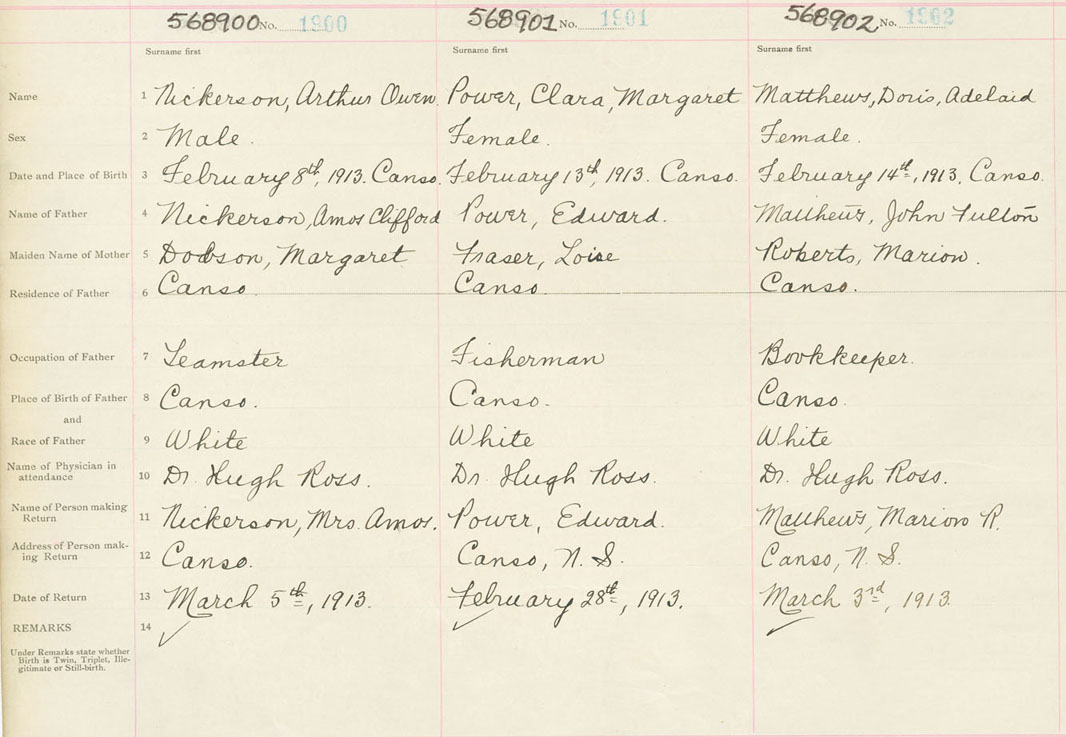 568900 No. 1900 568901 No. 1901 568902 No. 1902
Surname first Surname first Surname first
Name 1 Nickerson, Arthur Owen. Power, Clara, Margaret Matthews, Doris, Adelaid
Sex 2 Male. Female. Female.
Date and Place of Birth 3 February 8th, 1913. Canso. February 13th, 1913. Canso. February 14th, 1913. Canso.
Name of Father 4 Nickerson, Amos Clifford Power, Edward. Matthews, John Fulton
Maiden Name of Mother 5 Dobson, Margaret Fraser, Loise Roberts, Marion.
Residence of Father 6 Canso. Canso. Canso.
Occupation of Father 7 Teamster Fisherman Bookkeeper.
Place of Birth of Father 8 Canso. Canso. Canso.
and
Race of Father 9 White White White
Name of Physician in
attendance 10 Dr. Hugh Ross. Dr. Hugh Ross. Dr. Hugh Ross.
Name of Person making
Return 11 Nickerson, Mrs. Amos. Power, Edward. Matthews, Marion R.
Address of Person mak-
ing Return 12 Canso. Canso, N.S. Canso, N.S.
Date of Return 13 March 5th, 1913. February 28th, 1913. March 3rd, 1913.
REMARKS 14
Under Remarks state whether
Birth is Twin, Triplet, Ille-
gitimate or Still-birth.